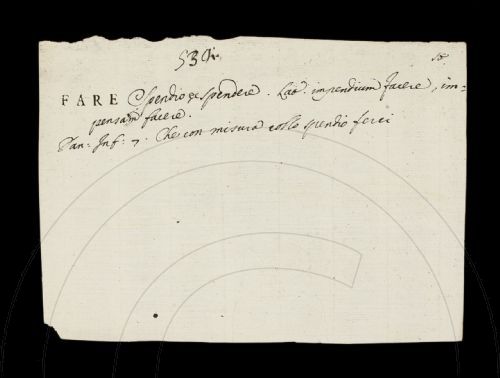 53
FARE Spendio per spendere. Lat. impendium facere, im=
pensam facere.
Dan: Inf: 7. Che con misura collo spendio ferci